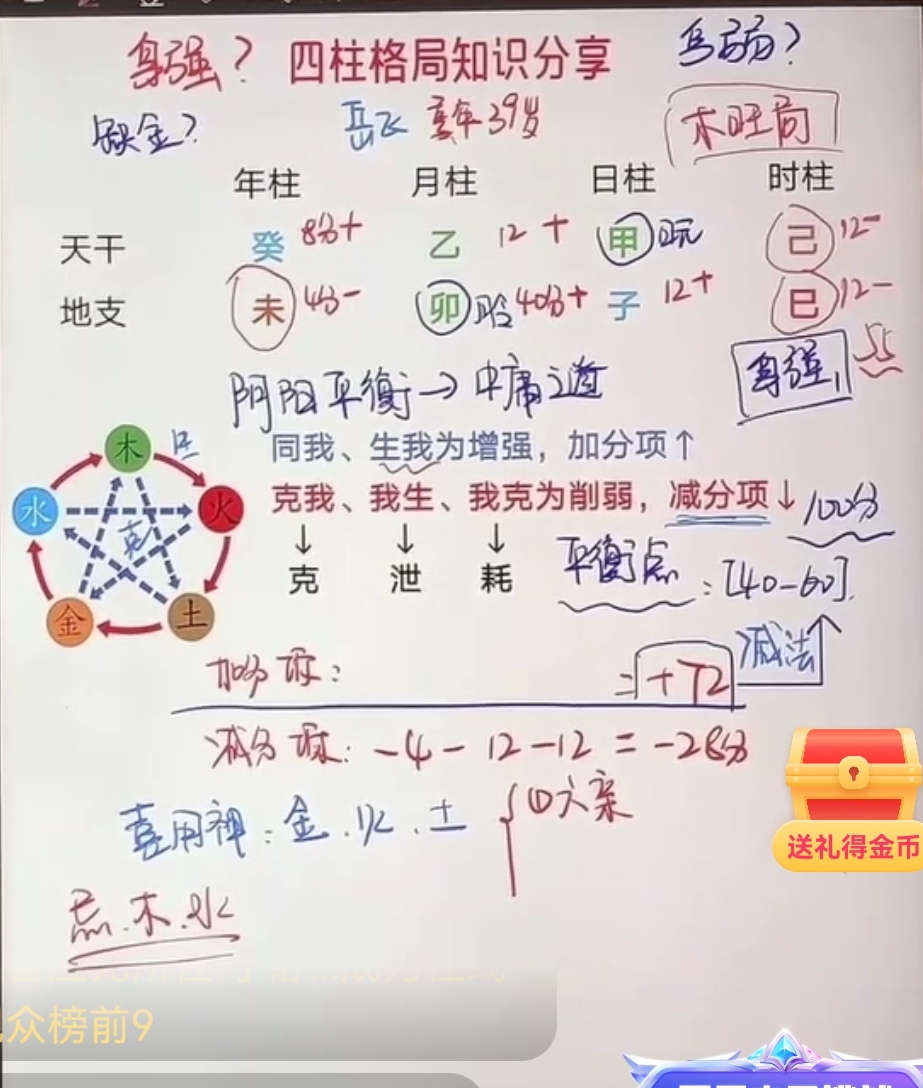 身强？ 四柱格局知识分享 身弱？
缺金？ 岳飞 享年39岁 木旺局
年柱 月柱 日柱 时柱
天干 癸 8分+ 乙 12+ 甲 日元 己 12-
地支 未 4分- 卯 月令 40分+ 子 12+ 巳 12-
阴阳平衡→中庸之道 身强
同我、生我为增强，加分项↑
克我、我生、我克为削弱，减分项↓ 100分
↓ ↓ ↓
克 泄 耗 平衡点：[40-60].
木 火 土 金 水
克
加分项： =+72 减法
减分项：-4-12-12=-28分
喜用神：金.火.土 ①六亲
忌.木.水
送礼得金币
众榜前9